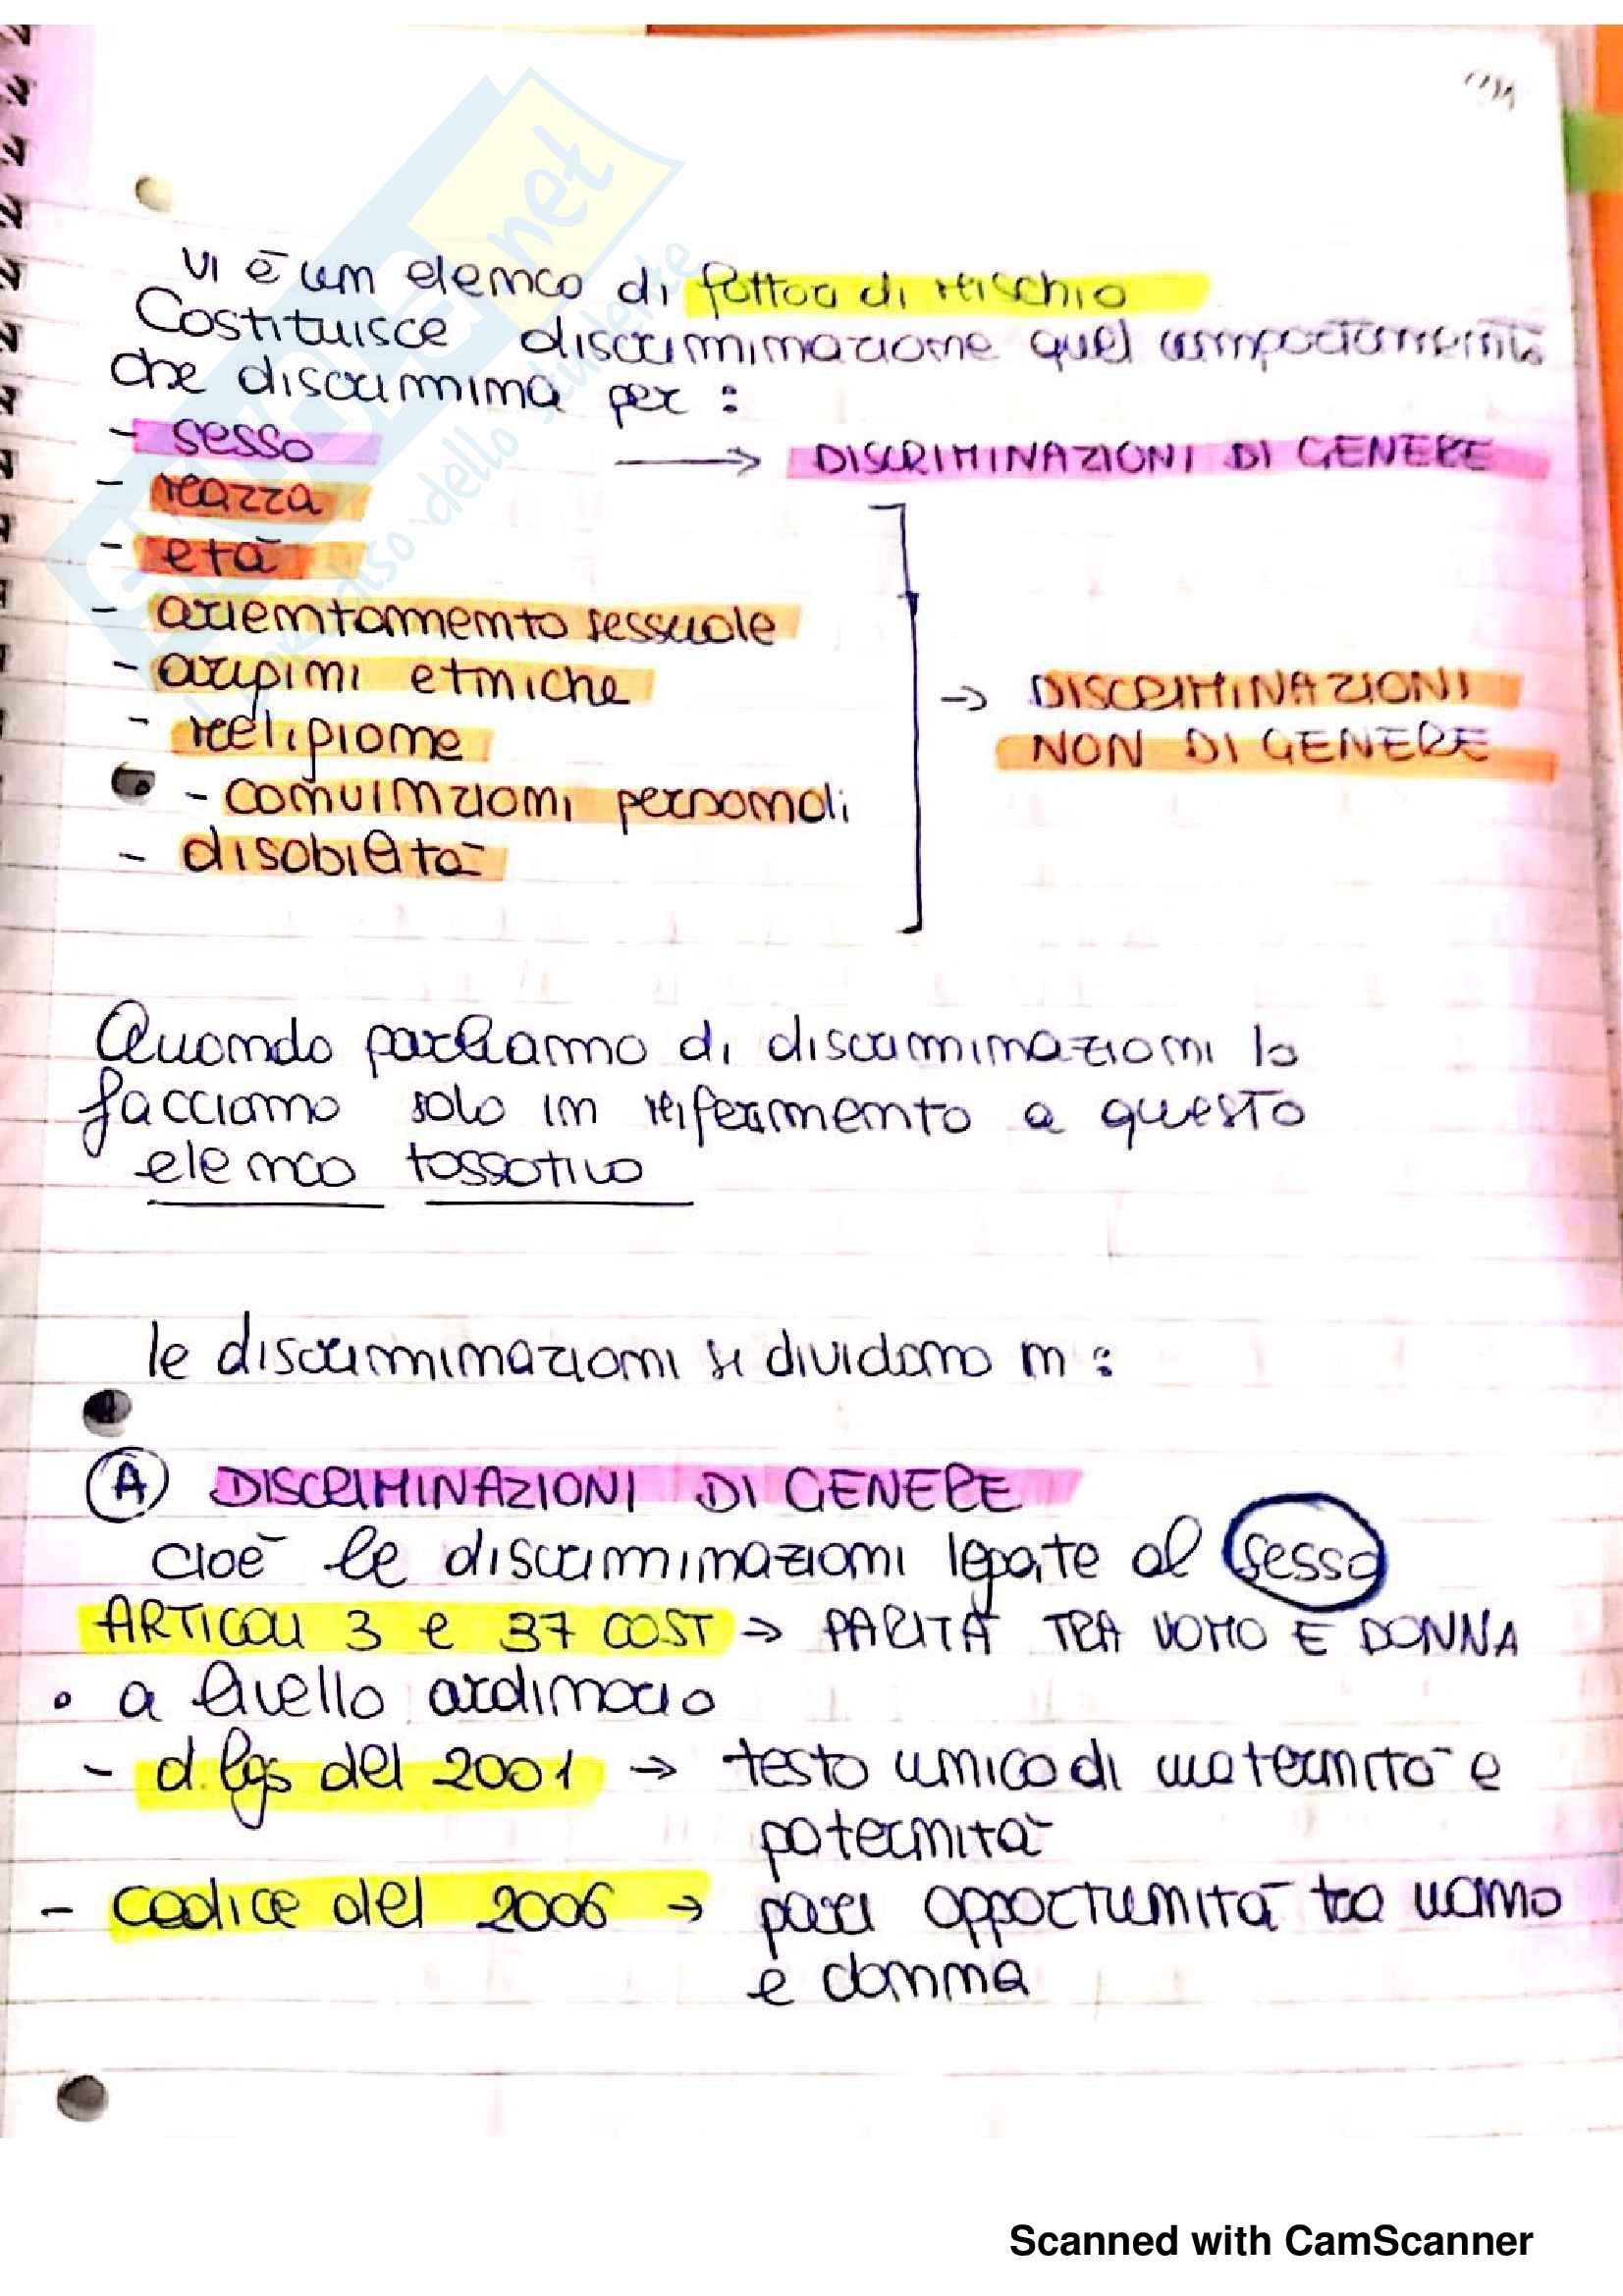 Vi è un elenco di fattori di rischio
Costituisce discriminazione quel comportamento
che discrimina per :
- sesso → DISCRIMINAZIONI DI GENERE
- razza
- età
- orientamento sessuale
- origini etniche → DISCRIMINAZIONI
- religione NON DI GENERE
- convinzioni personali
- disabilità
Quando parliamo di discriminazioni lo
facciamo solo in riferimento a questo
elenco tassativo
le discriminazioni si dividono in :
A DISCRIMINAZIONI DI GENERE
cioè le discriminazioni legate al sesso
ARTICOLI 3 e 37 COST → PARITÀ TRA UOMO E DONNA
• a livello ordinario
- d.lgs del 2001 → testo unico di maternità e
paternità
- codice del 2006 → pari opportunità tra uomo
e donna
Scanned with CamScanner
net
dello studente